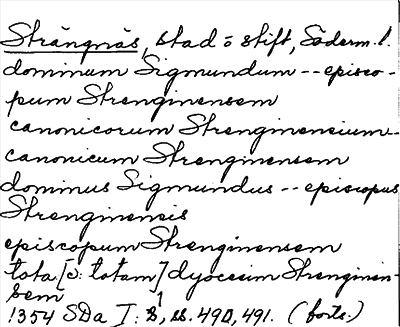 Strängnäs, stad o stift, Söderm. l.
dominum Sigmundum -- episco-
pum Strenginensem
canonicorum Strenginensium
canonicum Strenginensem
dominus Sigmundus -- episcopus
Strenginensis
episcopum Strenginensem
tota [ɔ: totam] dyocesim Strenginen-
sem
1354 SDa I: 1, ss. 490, 491. (forts.)